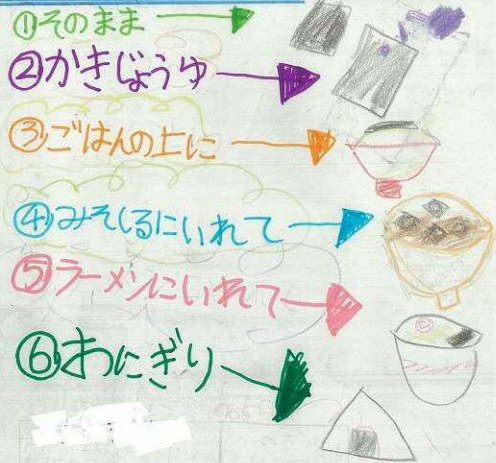 ①そのまま
②かきじょうゆ
③ごはんの上に
④みそしるにいれて
⑤ラーメンにいれて
⑥おにぎり